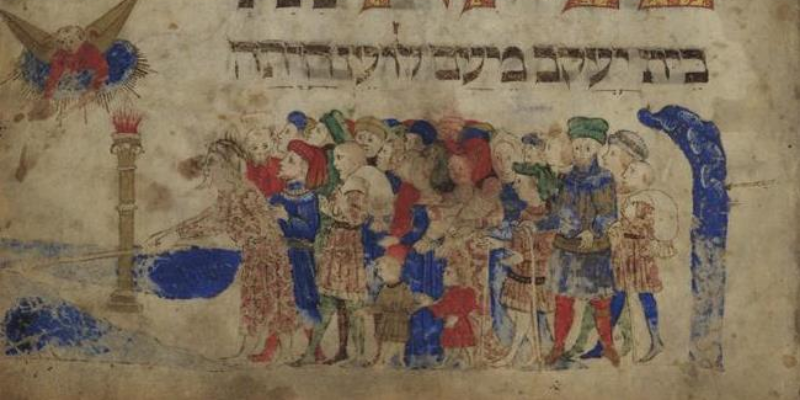 בית יעקב מעם לועז היתה